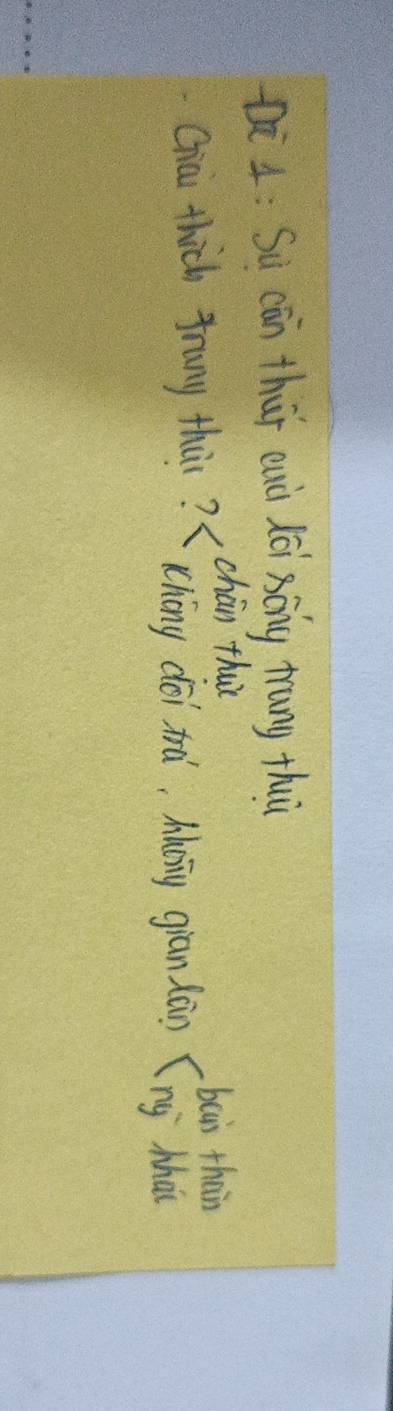 Đề 1: Sự cần thiết của lối sống trung thực
- Giải thích trung thực? < chân thực
không dối trá, không gian lận < bản thân
ng` khác